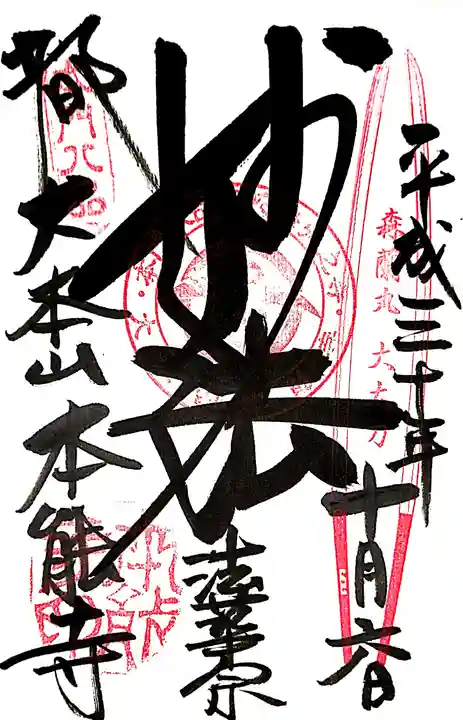 平成三十年
十月六日
森蘭丸 大太刀
妙法
法華宗
都
大本山本能寺